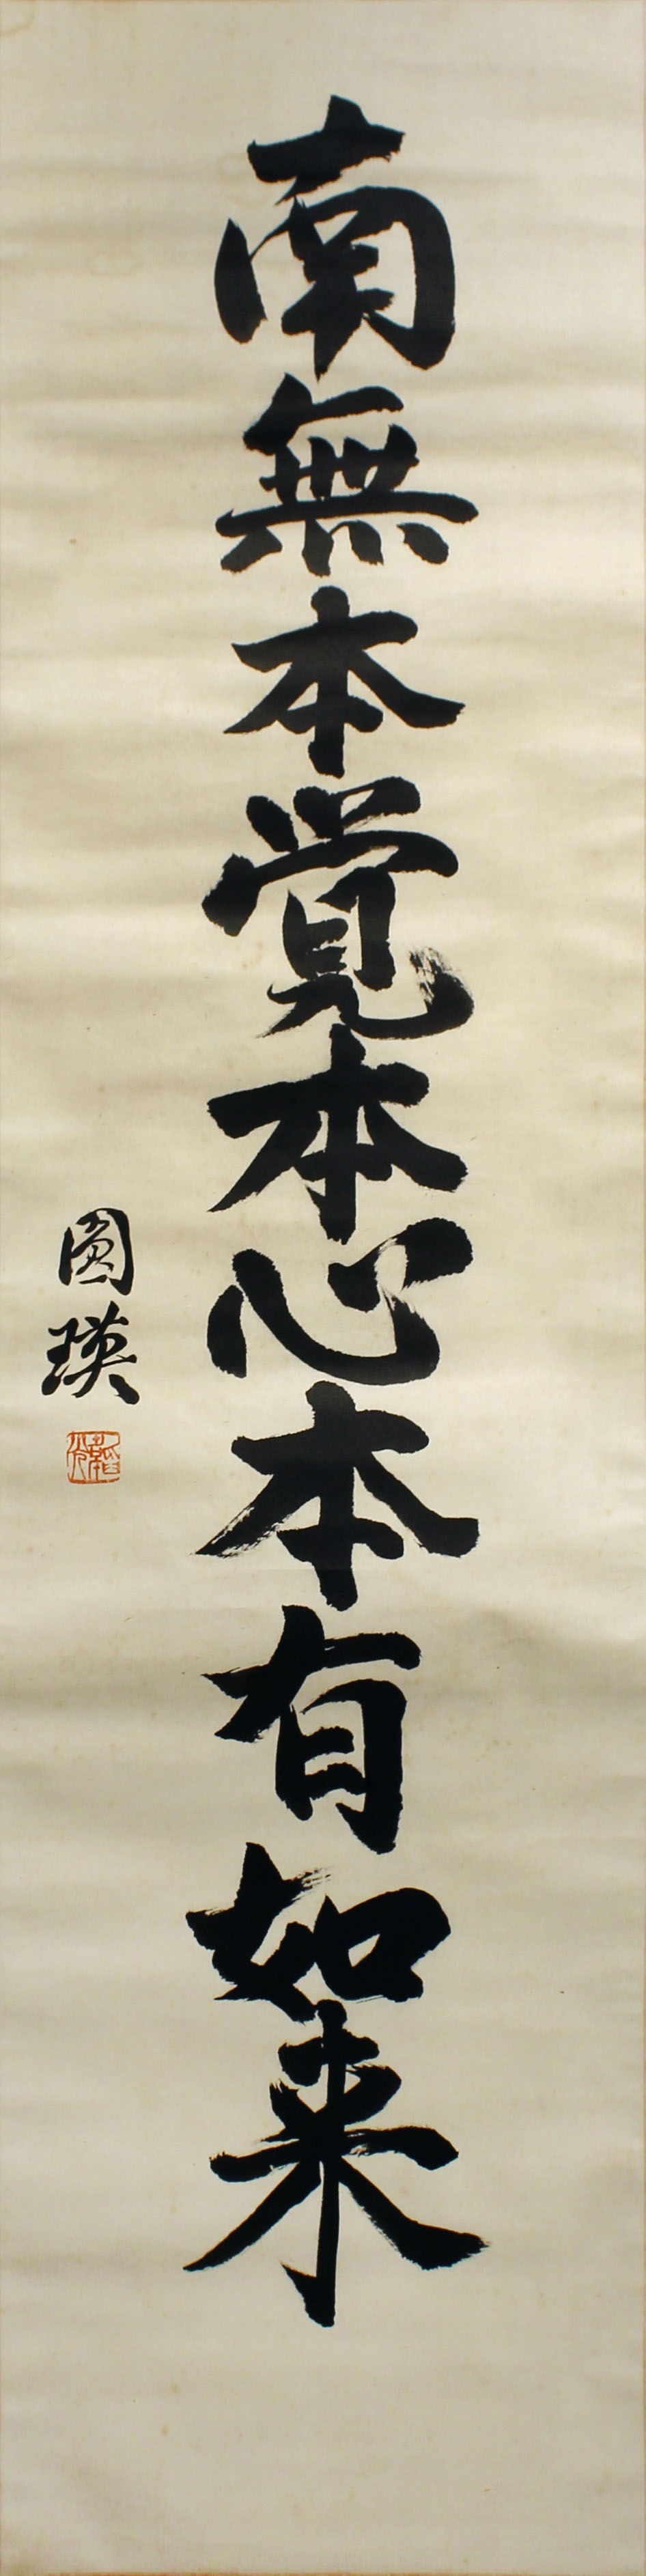 南無本覚本心本有如来
圓瑛